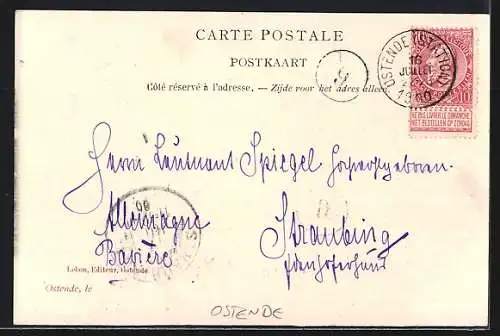 CARTE POSTALE
POSTKAART
Côté réservé à l'adresse. — Zijde voor het adres alleen.
9
OSTENDE (STATION)
16
JUILLET
1900
10
NE PAS LIVRER LE DIMANCHE
NIET BESTELLEN OP ZONDAG
Herrn Leutnant Spiegel Hochwohlgeboren
Allemagne
Bavière
Straubing
Lebon, Editeur, Ostende
Ostende, le
OSTENDE